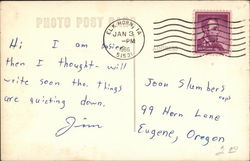 PHOTO POST
ELK HORN, IA
JAN 3
PM
1966
51531
Hi! I am busier
then I thought - will
write soon tho. Things
are quieting down.
Jim
Jean Slumbers
99 Horn Lane
Eugene, Oregon